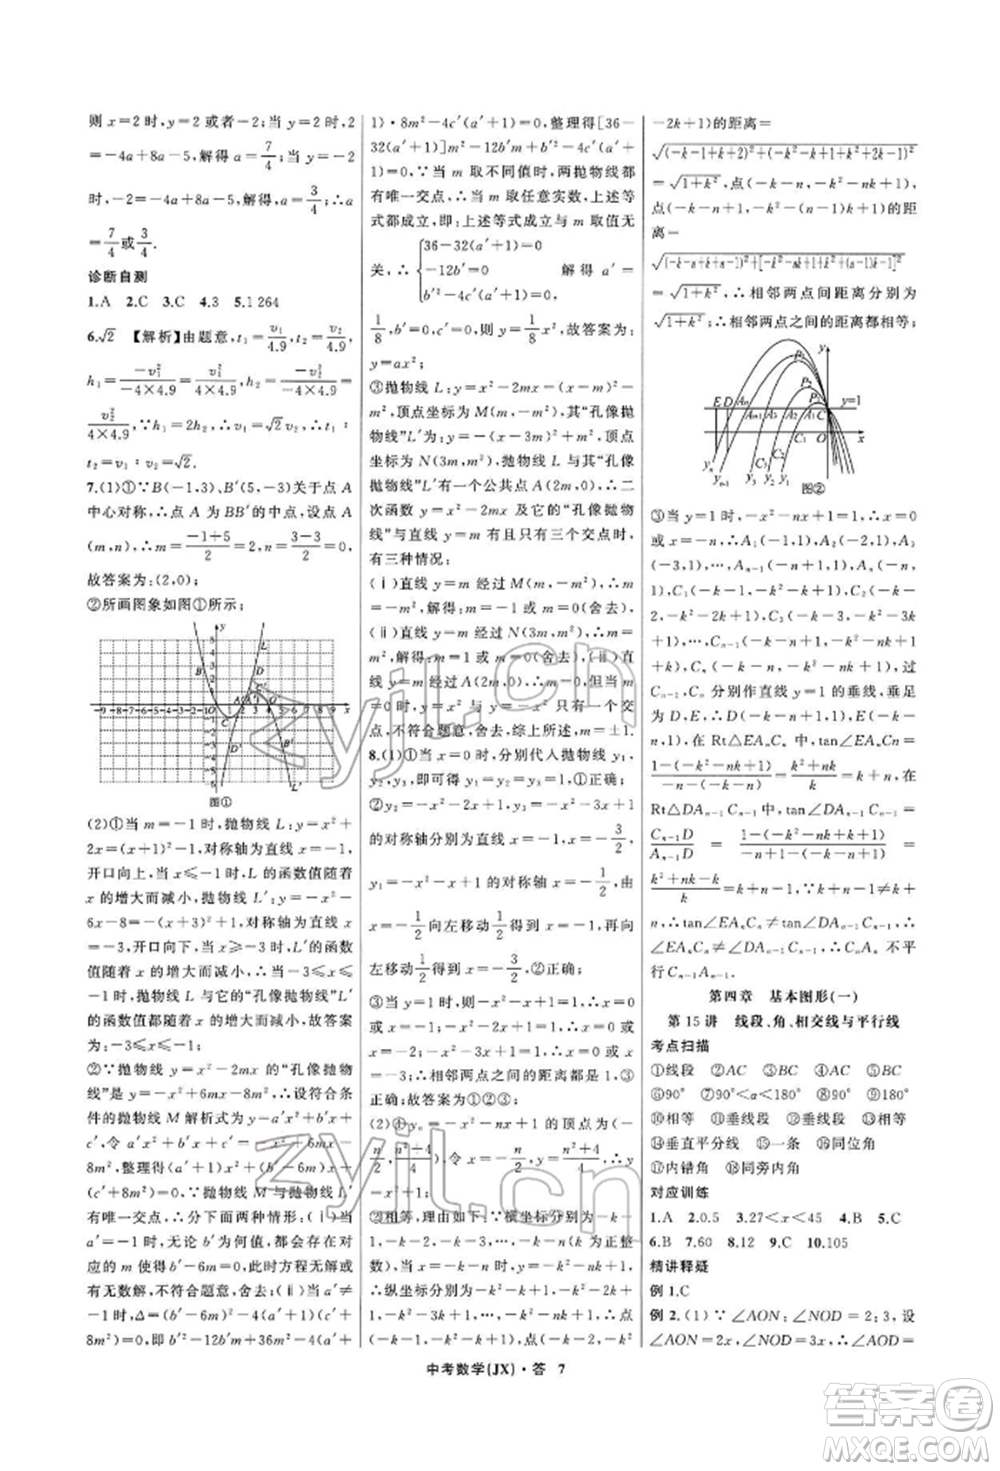 则 x=2 时,y=2或者-2;当 x=2 时,y=2,2
=-4a+8a-5,解得 a=7/4;当 x=2 时,y=-2
时,-2=-4a+8a-5,解得 a=3/4;∴a
=7/4或3/4.
诊断自测
1.A 2.C 3.C 4.3 5.1 264
6.√2 【解析】由题意,t₁=v₁/4.9,t₂=v₂/4.9,
h₁=-v₁²/-4×4.9=v₁²/4×4.9,h₂=-v₂²/-4×4.9=
v₂²/4×4.9,∵h₁=2h₂,∴v₁=√2v₂,∴t₁:t₂
=v₁:v₂=√2.
7.(1)①∵B(-1,3),B′(5,-3)关于点 A
中心对称,∴点 A 为 BB′的中点,设点 A
(m,n),∴m=-1+5/2=2,n=3-3/2=0,
故答案为:(2,0);
②所画图象如图①所示;
图①
(2)①当 m=-1 时,抛物线 L:y=x²+
2x=(x+1)²-1,对称轴为直线 x=-1,
开口向上,当 x≤-1 时,L 的函数值随着
x 的增大而减小,抛物线 L′:y=-x²-
6x-8=-(x+3)²+1,对称轴为直线 x
=-3,开口向下,当 x≥-3 时,L′的函数
值随着 x 的增大而减小,∴当-3≤x≤
-1 时,抛物线 L 与它的“孔像抛物线”L′
的函数值都随着 x 的增大而减小,故答案
为:-3≤x≤-1;
②∵抛物线 y=x²-2mx 的“孔像抛物
线”是 y=-x²+6mx-8m²,∴设符合条
件的抛物线 M 解析式为 y=a′x²+b′x+
c′,令 a′x²+b′x+c′=-x²+6mx-
8m²,整理得(a′+1)x²+(b′-6m)x+
(c′+8m²)=0,∵抛物线 M 与抛物线 L′
有唯一交点,∴分下面两种情形:(ⅰ)当 a′
=-1 时,无论 b′为何值,都会存在对
应的 m 使得 b′-6m=0,此时方程无解或有
无数解,不符合题意,舍去;(ⅱ)当 a′≠
-1 时,Δ=(b′-6m)²-4(a′+1)(c′+
8m²)=0,即 b′²-12b′m+36m²-4(a′+
1)·8m²-4c′(a′+1)=0,整理得[36-
32(a′+1)]m²-12b′m+b′²-4c′(a′+
1)=0,∵当 m 取不同值时,两抛物线都
有唯一交点,∴当 m 取任意实数,上述等
式都成立,即:上述等式成立与 m 取值无
关,∴{36-32(a′+1)=0 -12b′=0 b′²-4c′(a′+1)=0 解得 a′=
1/8,b′=0,c′=0,则 y=1/8x²,故答案为:
y=ax²;
③抛物线 L:y=x²-2mx=(x-m)²-
m²,顶点坐标为 M(m,-m²),其“孔像抛
物线”L′为:y=-(x-3m)²+m²,顶点
坐标为 N(3m,m²),抛物线 L 与其“孔像
抛物线”L′有一个公共点 A(2m,0),∴二
次函数 y=x²-2mx 及它的“孔像抛物
线”与直线 y=m 有且只有三个交点时,
有三种情况:
(ⅰ)直线 y=m 经过 M(m,-m²),∴m
=-m²,解得:m=-1 或 m=0(舍去),
(ⅱ)直线 y=m 经过 N(3m,m²),∴m=
m²,解得:m=1 或 m=0(舍去),(ⅲ)直
线 y=m 经过 A(2m,0),∴m=0,但当 m
=0 时,y=x² 与 y=-x² 只有一个交
点,不符合题意,舍去;综上所述,m=±1.
8.(1)①当 x=0 时,分别代入抛物线 y₁,
y₂,y₃,即可得 y₁=y₂=y₃=1;①正确;
②y₂=-x²-2x+1,y₃=-x²-3x+1
的对称轴分别为直线 x=-1,x=-3/2,
y₁=-x²-x+1 的对称轴 x=-1/2,由
x=-1/2向左移动1/2得到 x=-1,再向
左移动1/2得到 x=-3/2,②正确;
③当 y=1 时,则-x²-x+1=1,∴x=0
或-1;-x²-2x+1=1,∴x=0 或 x=
-2;-x²-3x+1=1,∴x=0 或 x=
-3,∴相邻两点之间的距离都是 1,③正
确;故答案为①②③;
(2)①yₙ=-x²-nx+1 的顶点为(-
n/2,n²+4/4),令 x=-n/2,y=n²+4/4,∴y
=x²+1;
②相等,理由如下:∵横坐标分别为-k-1,
-k-2,-k-3,…,-k-n(k 为正整
数),当 x=-k-1 时,y=-k²-k+1,
∴纵坐标分别为-k²-k+1,-k²-2k
+1,-k²-3k+1,…,-k²-nk+1,∴点
(-k-1,-k²-k+1),点(-k-2,-k²
-2k+1)的距离=
√(-k-1+k+2)²+(-k²-k+1+k²+2k-1)²
=√1+k²,点(-k-n,-k²-nk+1),
点(-k-n+1,-k²-nk+k+1)的距
离=
√(-k-n+k+n-1)²+[-k²-nk+1-(-k²-nk+k+1)]²
=√1+k²;∴相邻两点间距离分别为
√1+k²;∴相邻两点之间的距离都相等;
图②
③当 y=1 时,-x²-nx+1=1,∴x=0
或 x=-n,∴A₁(-1,1),A₂(-2,1),A₃
(-3,1),…,Aₙ₋₁(-n+1,1),Aₙ(-n,
1),C₁(-k-1,-k²-k+1),C₂(-k-
2,-k²-2k+1),C₃(-k-3,-k²-3k+
1),…,Cₙ₋₁(-k-n+1,-k²-nk+k
+1),Cₙ(-k-n,-k²-nk+1),过
Cₙ,Cₙ₋₁ 分别作直线 y=1 的垂线,垂足
为 D,E,∴D(-k-n+1,1),E(-k-
n,1),在 Rt△EAₙCₙ 中,tan∠EAₙCn=
1-(-k²-nk+1)/-n-(-n-k)=k²+nk/k=k+n,在
Rt△DAₙ₋₁Cₙ₋₁ 中,tan∠DAₙ₋₁Cₙ₋₁=
Cₙ₋₁D/Aₙ₋₁D=1-(-k²-nk+k+1)/-n+1-(-k-n+1)=
k²+nk-k/k=k+n-1,
∴tan∠EAₙCₙ≠tan∠DAₙ₋₁Cₙ₋₁,
∴∠EAₙCₙ≠∠DAₙ₋₁Cₙ₋₁,∴AₙCₙ 不平
行 Cₙ₋₁Aₙ₋₁.
第四章 基本图形(一)
第 15 讲 线段、角、相交线与平行线
考点扫描
①线段 ②AC ③BC ④AC ⑤BC
⑥90° ⑦90°<α<180° ⑧180° ⑨90°
⑩相等 ⑪垂线段 ⑫垂线段 ⑬相等
⑭垂直平分线 ⑮一条 ⑯同位角
⑰内错角 ⑱同旁内角
对应训练
1.A 2.0.5 3.27<x<45 4.B 5.C
6.B 7.60 8.12 9.C 10.105
精讲释疑
例 1.C
例 2.(1)∵∠AON:∠NOD=2:3,设
∠AON=2x,∠NOD=3x,∴∠AOD=
中考数学(JX)·答 7
zyjl.cn
zyjl.cn
答案圈
MXQE.COM